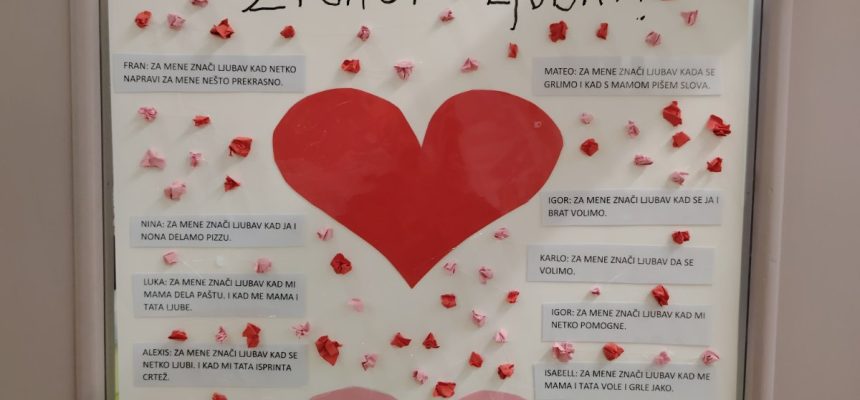 FRAN: ZA MENE ZNAČI LJUBAV KAD NETKO
NAPRAVI ZA MENE NEŠTO PREKRASNO.
NINA: ZA MENE ZNAČI LJUBAV KAD JA I
NONA DELAMO PIZZU.
LUKA: ZA MENE ZNAČI LJUBAV KAD MI
MAMA DELA PAŠTU. I KAD ME MAMA I
TATA LJUBE.
ALEXIS: ZA MENE ZNAČI LJUBAV KAD SE
NETKO LJUBI. I KAD MI TATA ISPRINTA
CRTEŽ.
MATEO: ZA MENE ZNAČI LJUBAV KADA SE
GRLIMO I KAD S MAMOM PIŠEM SLOVA.
IGOR: ZA MENE ZNAČI LJUBAV KAD SE JA I
BRAT VOLIMO.
KARLO: ZA MENE ZNAČI LJUBAV DA SE
VOLIMO.
IGOR: ZA MENE ZNAČI LJUBAV KAD MI
NETKO POMOGNE.
ISABELL: ZA MENE ZNAČI LJUBAV KAD ME
MAMA I TATA VOLE I GRLE JAKO.